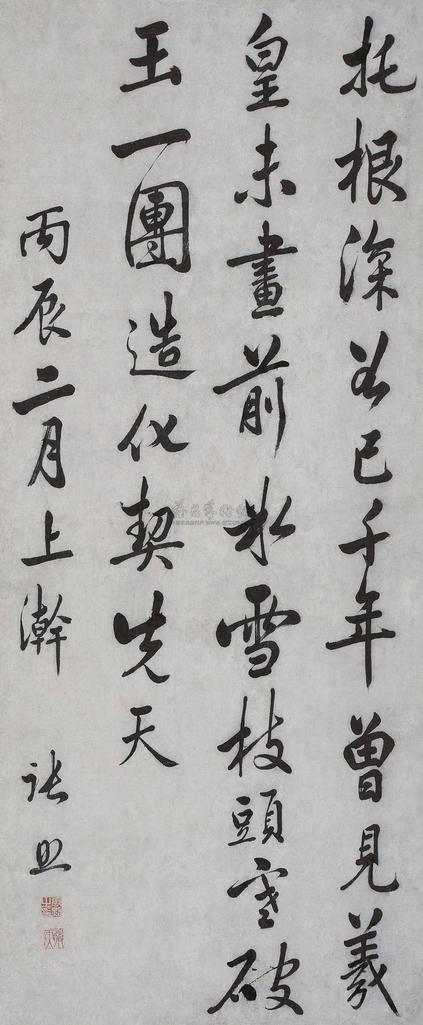 托根深谷已千年曾見羲
皇未畫前冰雪枝頭寒破
玉一團造化契先天
丙辰二月上澣 張照